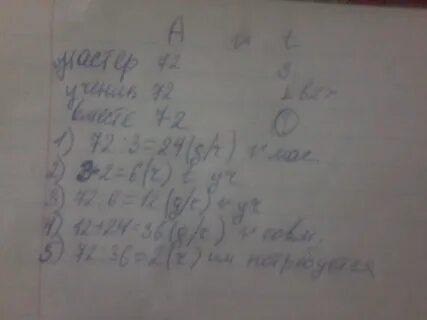 A v t
мастер 72 3
ученик 72 в 2 >
вместе 72 ?
1) 72:3=24(д/ч) v мас.
2) 3·2=6(ч) t уч
3) 72:6=12(д/ч) v уч
4) 12+24=36(д/ч) v совм.
5) 72:36=2(ч) им потребуется